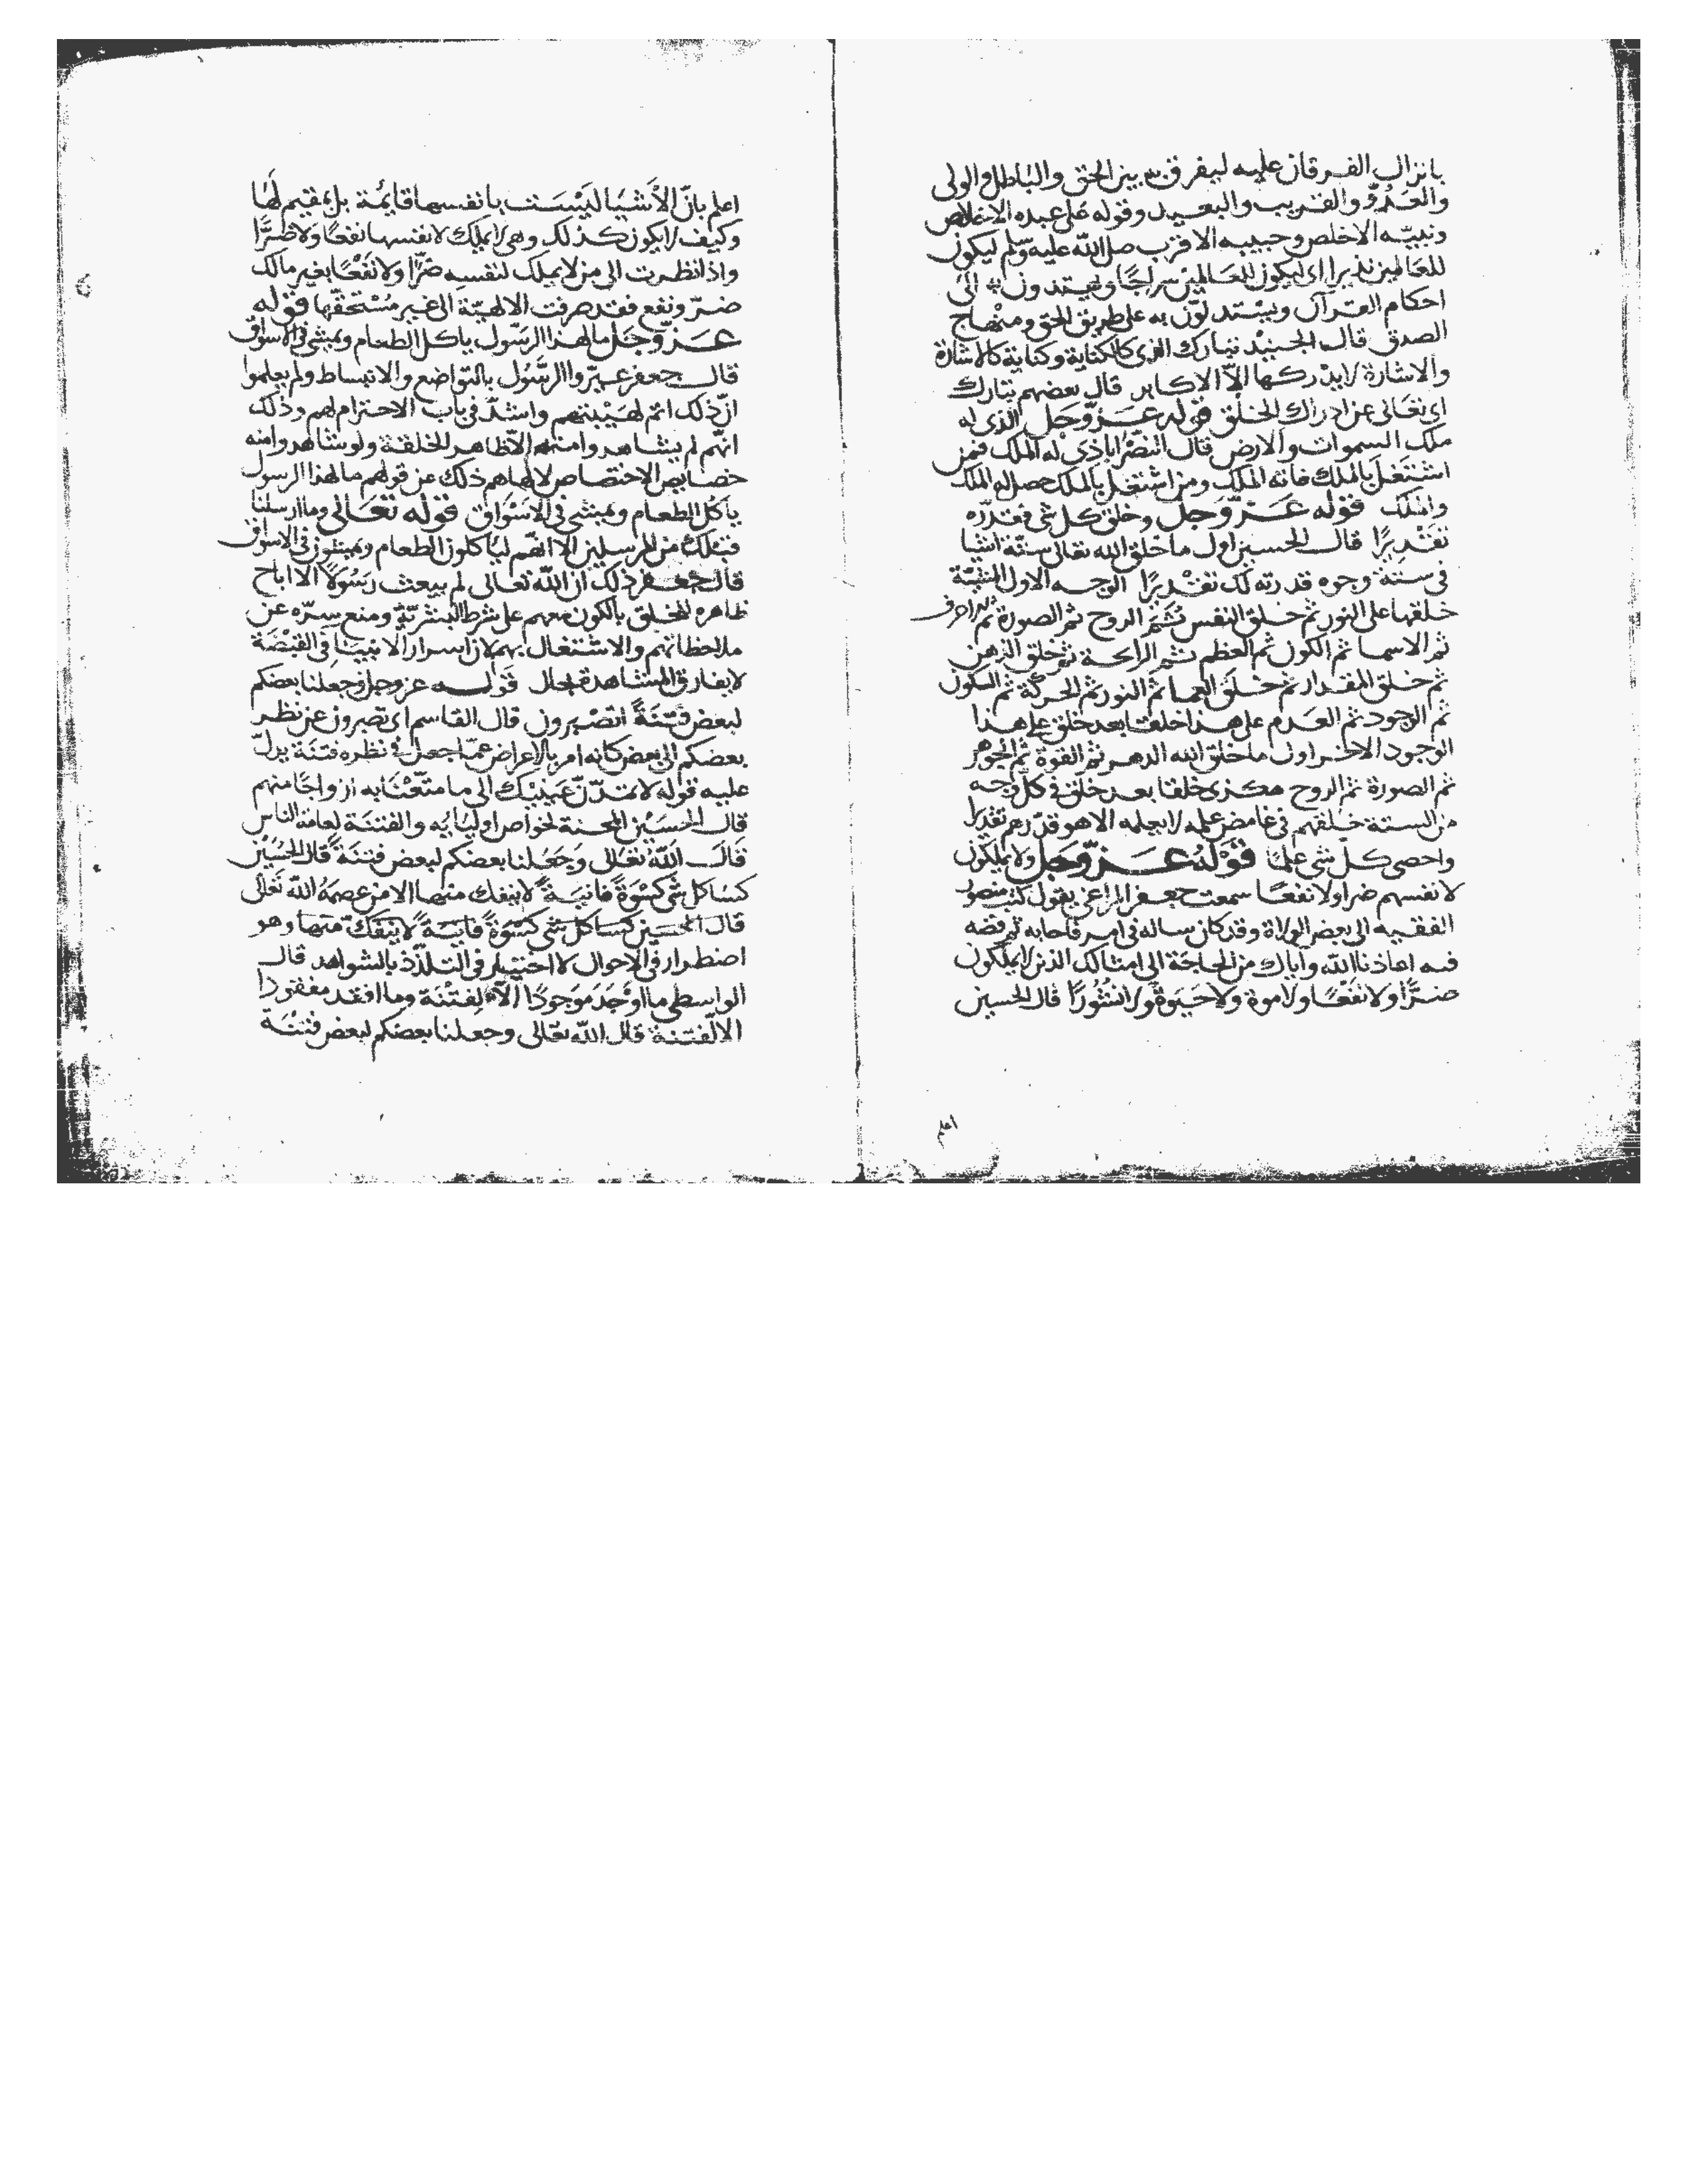 بانزال الفرقان عليه ليفرق به بين الحق والباطل والولى
والعدو والقريب والبعيد وقوله على عبده الاخلاص
ونبيه الاخلص وحبيبه الاقرب صلى الله عليه وسلم ليكون
للعالمين نذيرا اى ليكون للعالمين سراجا ويهتدون به الى
احكام القرآن ويستدلون به على طريق الحق ومنهاج
الصدق قال الجنيد تبارك الذى كالكناية وكناية كالاشارة
والاشارة لا يدركها الا الاكابر قال بعضهم تبارك
اى تعالى عن ادراك الخلق قوله عز وجل الذى له
ملك السموات والارض قال النصراباذى له الملك فمن
اشتغل بالملك فاته الملك ومن اشتغل بالملك حصل له الملك
والملك قوله عز وجل وخلق كل شى فقدره
تقديرا قال الحسين اول ما خلق الله تعالى ستة اشيا
فى ستة وجوه قدرته لك تقديرا الوجه الاول المشية
خلقها على النور ثم خلق النفس ثم الروح ثم الصورة ثم الاحرف
ثم الاسما ثم الكون ثم العظم ثم الرايحة ثم خلق الذهن
ثم خلق المقدار ثم خلق العما ثم النور ثم الحركة ثم السكون
ثم الوجود ثم العدم على هذا خلقا بعد خلق على هذا
الوجود الاخر اول ما خلق الله الدهر ثم القوة ثم الجوهر
ثم الصورة ثم الروح هكذى خلقا بعد خلق فى كل وجه
من الستة خلقهم فى غامض علمه لا يعلمه الا هو قدرهم تقديرا
واحصى كل شى علما قوله عز وجل ولا يملكون
لانفسهم ضرا ولا نفعا سمعت جعفر المراغى يقول كتب منصور
الفقيه الى بعض الولاة وقد كان ساله فى امر فاحابه
فيه اعاذنا الله واياك من الحاجة الى امثالك الذين لا يملكون
ضرا ولا نفعا ولا موة ولا حيوة ولا نشورا قال الحسين
اعلم
اعلم بان الاشيا ليست بانفسها قايمة بل بمقيم لها
وكيف لا يكون كذلك وهى لا يملك لانفسها نفعا ولا ضرا
واذا نظرت الى من لا يملك لنفسه ضرا ولا نفعا بغير مالك
ضر ونفع فقد صرفت الالهية الى غير مستحقها قوله
عز وجل ما لهذا الرسول ياكل الطعام ويمشى فى الاسواق
قال جعفر عيروا الرسول بالتواضع والانبساط ولم يعلموا
ان ذلك اتم لهيبتهم واشد فى باب الاحترام لهم وذلك
انهم لم يشاهدوا منه الا ظاهر الخلقة ولو شاهدوا منه
خصايص الاختصاص لالهاهم ذلك عن قولهم ما لهذا الرسول
ياكل الطعام ويمشى فى الاسواق قوله تعالى وما ارسلنا
قبلك من المرسلين الا انهم لياكلون الطعام ويمشون فى الاسواق
قال جعفر ذلك ان الله تعالى لم يبعث رسولا الا اباح
ظاهره للخلق بالكون معهم على شرط البشرية ومنع سره عن
ملاحظاتهم والاشتغال بهم لان اسرار الانبيا فى القبضة
لا يفارق المشاهدة بحال قوله عز وجل وجعلنا بعضكم
لبعض فتنة اتصبرون قال القاسم اى تصبرون عن نظر
بعضكم الى بعض كانه امر بالاعراض عما جعل فى نظره فتنة يدل
عليه قوله لا تمدن عينيك الى ما متعنا به ازواجا منهم
قال الحسين المحنة لخواص اوليايه والفتنة لعامة الناس
قال الله تعالى وجعلنا بعضكم لبعض فتنة قال الحسين
كسا كل شى كسوة فانية لا ينفك منها الا من عصمه الله تعالى
قال الحسين كسا كل شى كسوة فانية لا ينفك منها وهو
اضطرار فى الاحوال لا اختيار فى التلذذ بالشواهد قال
الواسطى ما اوجد موجودا الا لفتنة وما افقد مفقودا
الا لفتنة قال الله تعالى وجعلنا بعضكم لبعض فتنة